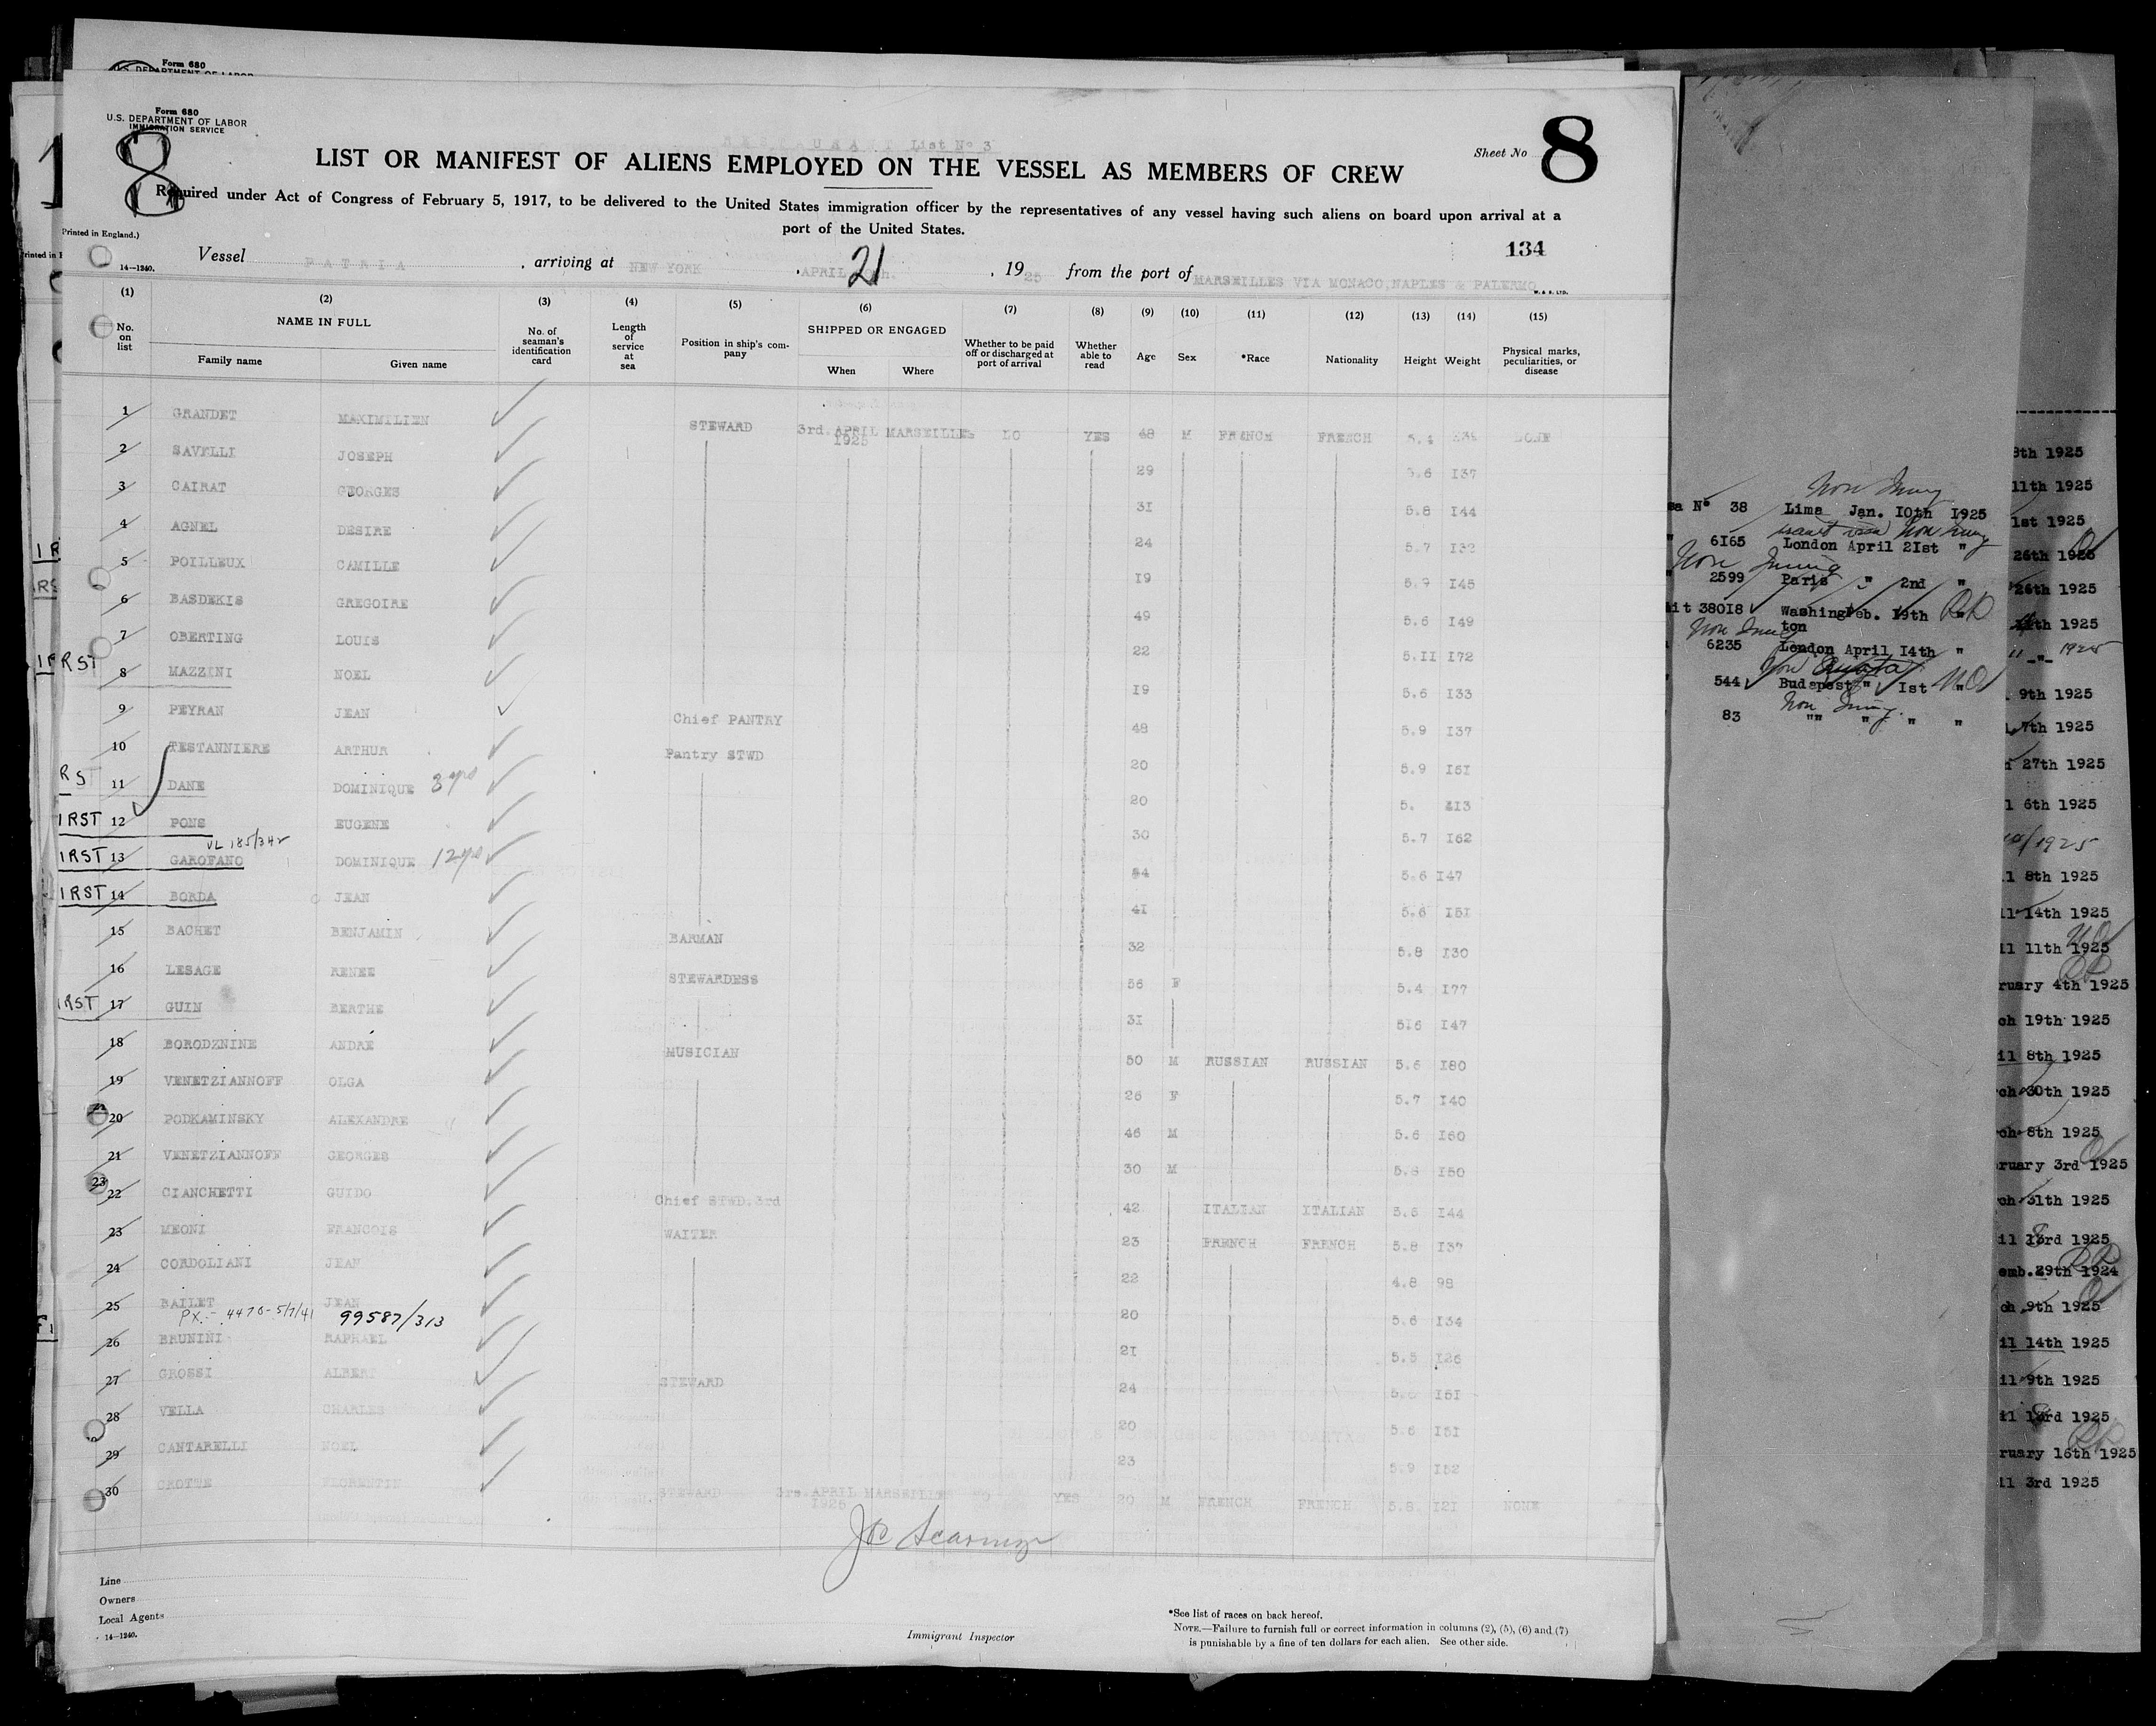 Form 680
U.S. DEPARTMENT OF LABOR
Form 680
U.S. DEPARTMENT OF LABOR
IMMIGRATION SERVICE
8
List No 3
Sheet No 8
LIST OR MANIFEST OF ALIENS EMPLOYED ON THE VESSEL AS MEMBERS OF CREW
Required under Act of Congress of February 5, 1917, to be delivered to the United States immigration officer by the representatives of any vessel having such aliens on board upon arrival at a
port of the United States.
Printed in England.)
134
14—1240.
Vessel PATRIA, arriving at NEW YORK, APRIL 21, 1925 from the port of MARSEILLES VIA MONACO, NAPLES & PALERMO
W. & S. LTD.
(1) (2) (3) (4) (5) (6) (7) (8) (9) (10) (11) (12) (13) (14) (15)
No. on list
NAME IN FULL
Family name Given name
No. of seaman's identification card
Length of service at sea
Position in ship's company
SHIPPED OR ENGAGED
When Where
Whether to be paid off or discharged at port of arrival
Whether able to read
Age Sex *Race Nationality Height Weight
Physical marks, peculiarities, or disease
1 GRANDET MAXIMILIEN STEWARD 3rd. APRIL 1925 MARSEILLES YES 48 M FRENCH FRENCH 5.4
2 SAVELLI JOSEPH 29 5.6 I37
3 CAIRAT GEORGES 3I 5.8 I44
4 AGNEL DESIRE 24 5.7
5 POILLEUX CAMILLE I9 5.9 I45
6 BASDEKIS GREGOIRE 49 5.6 I49
7 OBERTING LOUIS 22 5.II I72
8 MAZZINI NOEL I9 5.6 I33
9 PEYRAN JEAN Chief PANTRY 48 5.9 I37
10 TESTANNIERE ARTHUR Pantry STWD 20 5.9 I5I
RST 11 DANE DOMINIQUE 3 yrs 20 5.
IRST 12 PONS EUGENE 30 5.7 I62
VL 185/342
IRST 13 GAROFANO DOMINIQUE 12 yrs 54 5.6 I47
IRST 14 BORDA JEAN 4I 5.6 I5I
15 BACHET BENJAMIN BARMAN 32 5.8 I30
16 LESAGE RENEE STEWARDESS 56 F 5.4 I77
IRST 17 GUIN BERTHE 3I 5I6 I47
18 BORODZNINE ANDRE MUSICIAN 50 M RUSSIAN RUSSIAN 5.6 I80
19 VENETZIANNOFF OLGA 26 F 5.7 I40
20 PODKAMINSKY ALEXANDRE 46 M 5.6 I60
21 VENETZIANNOFF GEORGES 30 M I50
23
22 CIANCHETTI GUIDO Chief STWD. 3rd 42 ITALIAN ITALIAN 5.6 I44
23 MEONI FRANCOIS WAITER 23 FRENCH FRENCH 5.8 I37
24 CORDOLIANI JEAN 22 4.8 98
25 BAILET JEAN 20 5.6 I34
PX.- 4470-5/7/41 99587/313
26 BRUNINI RAPHAEL 2I 5.5 I26
27 GROSSI ALBERT STEWARD 24 I5I
28 VELLA CHARLES 20 5.6 I5I
29 CANTARELLI NOEL 23 5.9 I52
30 CROTTE FLORENTIN STEWARD 3rd. APRIL 1925 MARSEILLE YES 20 M FRENCH FRENCH 5.8 I2I NONE
Line
Owners
Local Agents
14—1240.
Immigrant Inspector
*See list of races on back hereof.
NOTE.—Failure to furnish full or correct information in columns (2), (5), (6) and (7)
is punishable by a fine of ten dollars for each alien. See other side.
Non Immig
No 38 Lima Jan. I0th I925
6I65 London April 2Ist "
Non Immig
2599 Paris " 2nd "
380I8 Washington Feb. I9th "
Non Immig
6235 London April I4th "
Non Quota
544 Budapest " Ist "
Non Immig.
83 "" " " "
8th 1925
11th 1925
1st 1925
26th 1925
26th 1925
th 1925
11 " 1925
9th 1925
7th 1925
27th 1925
6th 1925
1925
8th 1925
14th 1925
11th 1925
ruary 4th 1925
ch 19th 1925
il 8th 1925
ch 30th 1925
ch 8th 1925
ruary 3rd 1925
ch 31th 1925
il 13rd 1925
emb. 29th 1924
ch 9th 1925
il 14th 1925
il 9th 1925
il 13rd 1925
ruary 16th 1925
il 3rd 1925